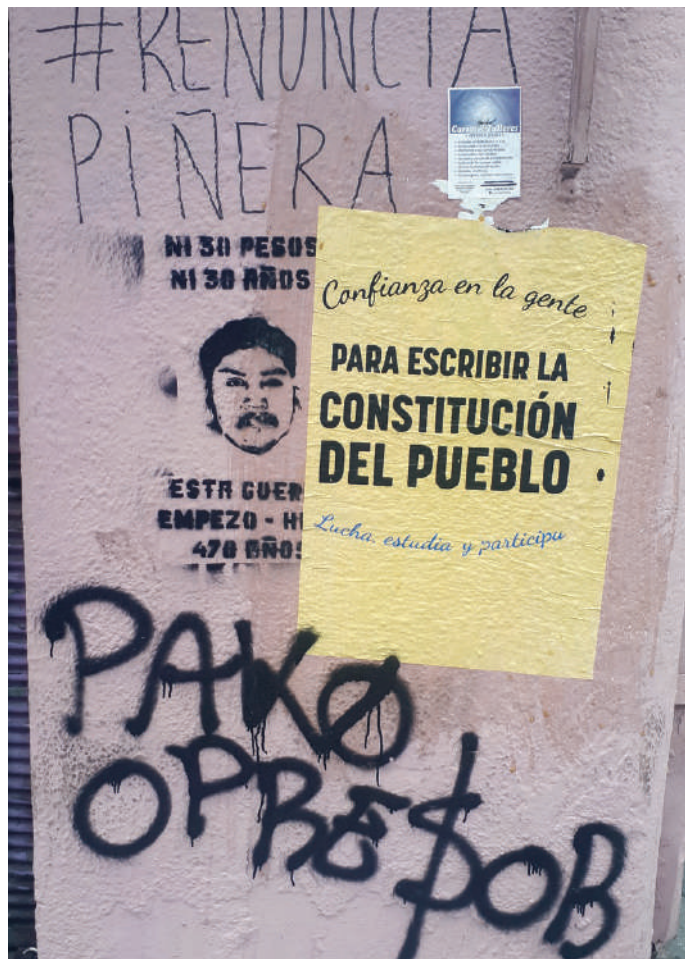 #RENUNCIA
PIÑERA
Cursos y Talleres
NI 30 PESOS
NI 30 AÑOS
ESTA GUER
EMPEZO - H
470 AÑOS
Confianza en la gente
PARA ESCRIBIR LA
CONSTITUCIÓN
DEL PUEBLO
Lucha, estudia y participa
PAKØ
OPRE$OR